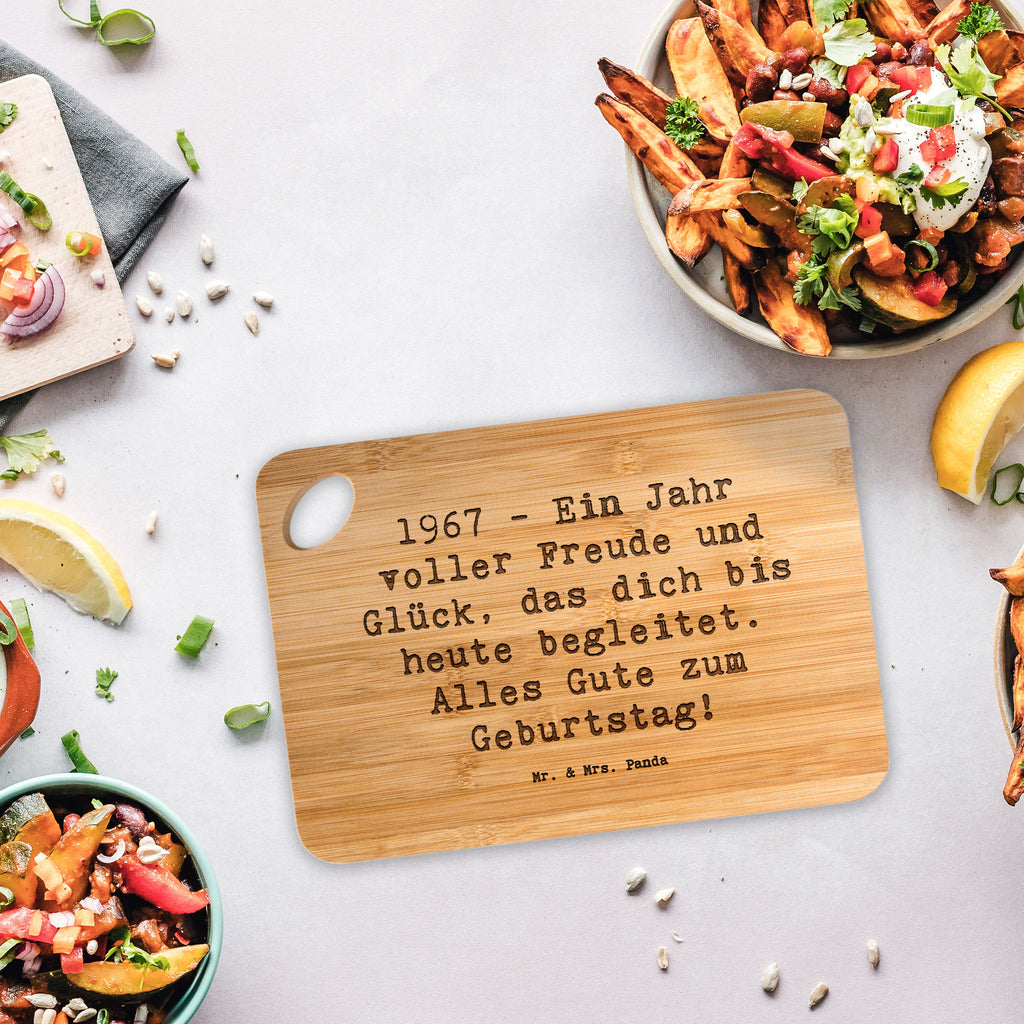 1967 - Ein Jahr
voller Freude und
Glück, das dich bis
heute begleitet.
Alles Gute zum
Geburtstag!
Mr. & Mrs. Panda